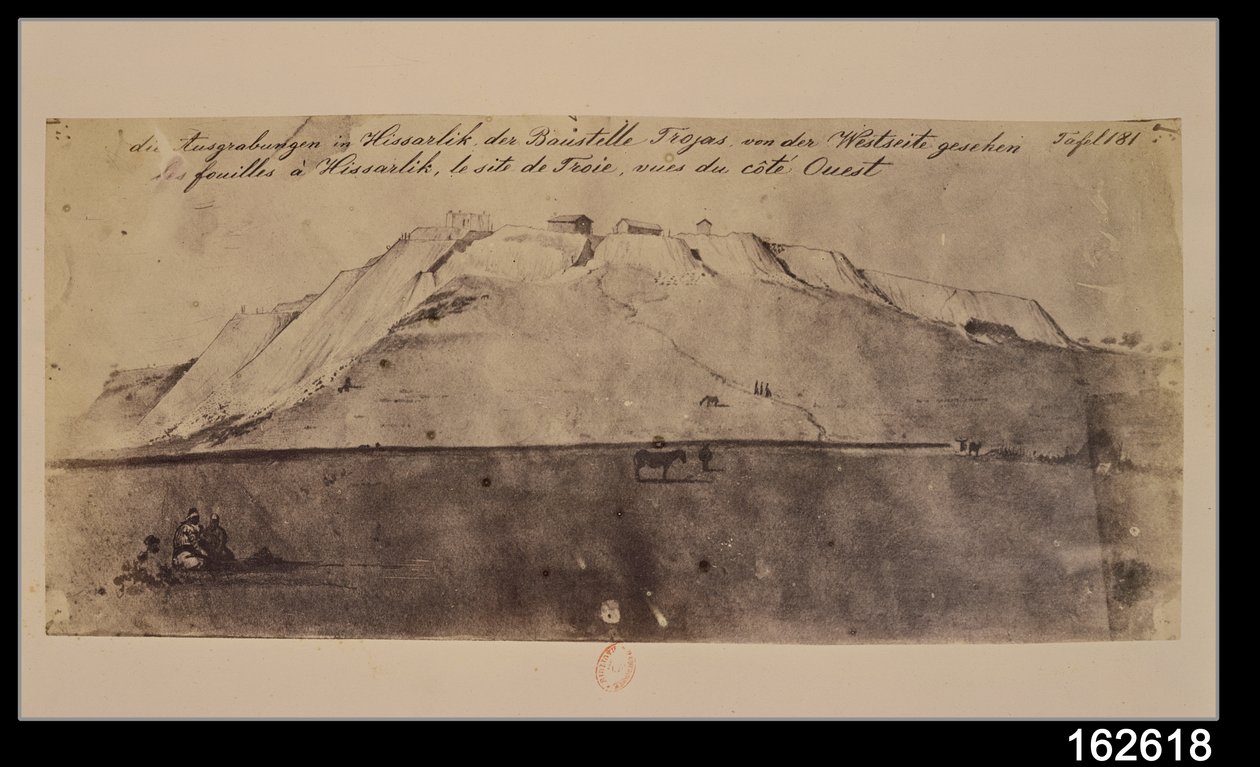 die Ausgrabungen in Hissarlik, der Baustelle Trojas, von der Westseite gesehen Tafel 181
les fouilles à Hissarlik, le site de Troie, vues du côté Ouest
162618